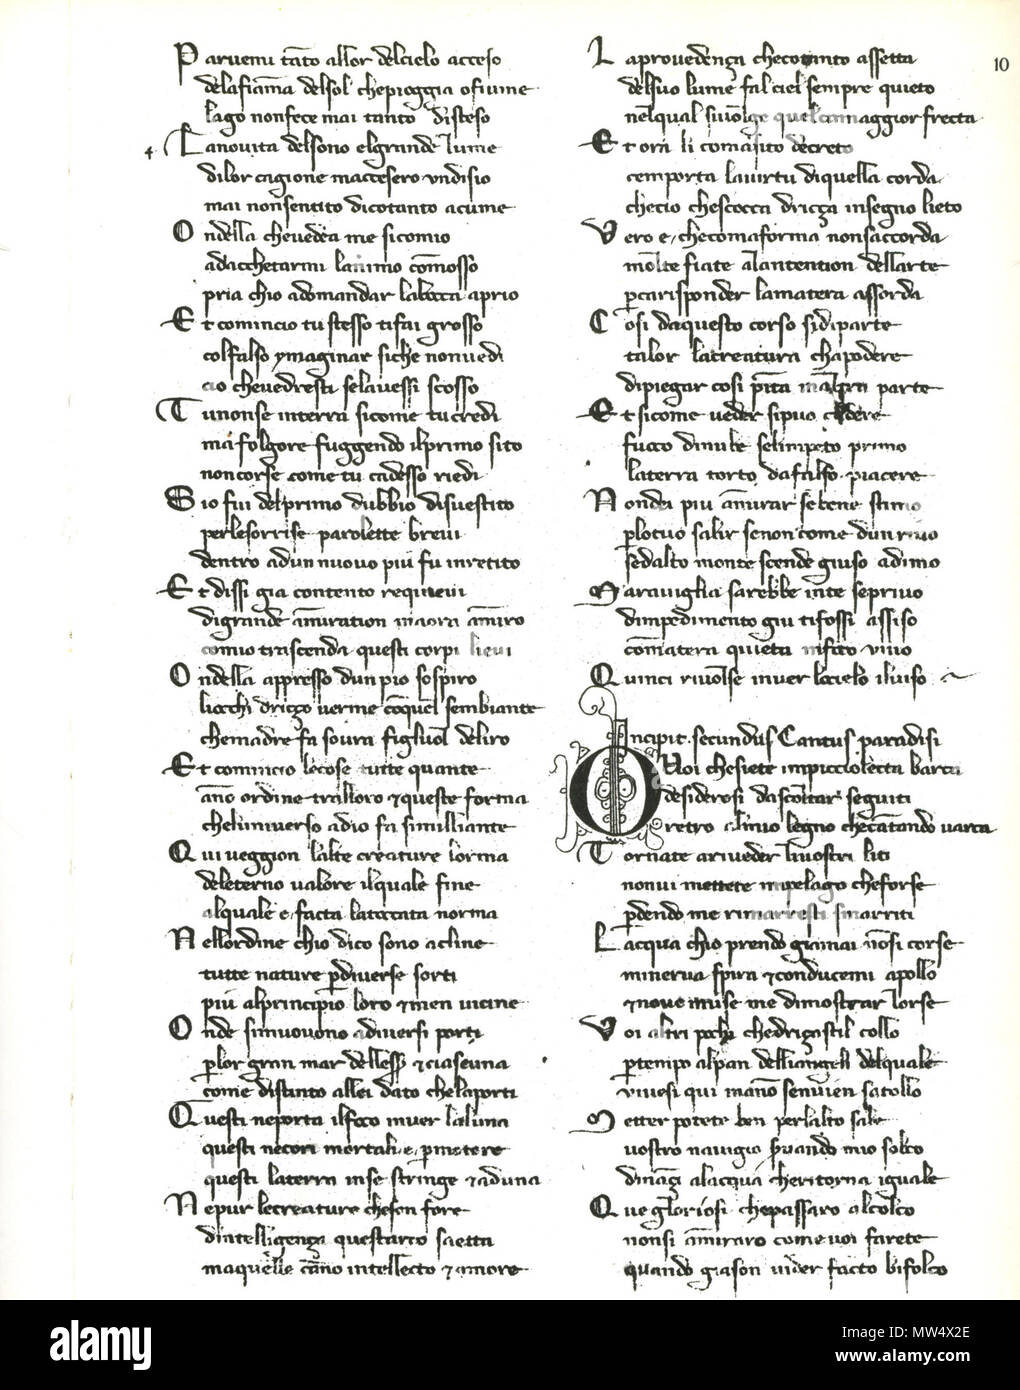 Paruemi tãto allor delcielo acceso
delafiãma delsol chepioggia ofiume
lago nonfece mai tanto disteso
Lanouita delsono elgrande lume
dilor cagione maccesero vndisio
mai nonsentito dicotanto acume
Ondella cheuedea me sicomio
adacchetarmi lanimo cõmosso
pria chio adomandar labocca aprio
Et comincio tu stesso tifai grosso
colfalso ymaginar siche nonuedi
cio cheuedresti selauessi scosso
Tu nonse interra sicome tucredi
ma folgore fuggendo ilprimo sito
noncorse come tu cadesso riedi
Sio fui delprimo dubbio disuestito
perlesorrise parolette breui
dentro adun nuouo piu fu inretito
Et dissi gia contento requieui
digrande ãmiration maora ãmiro
comio trascenda questi corpi lieui
Ondella appresso dun pio sospiro
liocchi drizzo uerme cõquel sembiante
chemadre fa soura figliuol deliro
Et comincio lecose tutte quante
ãno ordine tralloro ⁊ queste forma
cheluniuerso adio fa simillante
Qui veggion lalte creature lorma
deleterno valore ilquale fine
alquale e facta latoccata norma
Nellordine chio dico sono acline
tutte nature ꝑdiuerse sorti
piu alprincipio loro ⁊ men uicine
Onde simuouono adiuersi porti
ꝑlor gran mar dellesse ⁊ ciascuna
come distinto allei dato chelaporti
Questi neporta ilfoco inuer laluna
questi necori mortali e ꝑmotore
questi laterra inse stringe ⁊ aduna
Nepur lecreature cheson fore
dintelligenza questarco saetta
maquelle cãno intellecto ⁊ amore
10
Laprouedenza checotanto assetta
delsuo lume fal ciel sempre quieto
nelqual siuolge quelcannaggior frecta
Et ora li comasito decreto
cemporta lauirtu diquella corda
checio chescocca drizza insegno lieto
Vero e checomaforma nonsaccorda
molte fiate alantention dellarte
ꝑcarisponder lamatera assorda
Cosi daquesto corso sidiparte
talor lacreatura chapodere
dipiegar cosi pĩta inaltra parte
Et sicome ueder sipuo cadere
fuoco dinube selimpeto primo
laterra torto dafalso piacere
Nonda piu ãmirar sebene stimo
ꝑlotuo salir senon come dunriuo
sedalto monte scende giuso adimo
Marauiglia sarebbe inte sepriuo
dimpedimento giu tifossi assiso
comatera quieta infoco viuo
Quinci riuolse inuer locielo iluiso
Incipit secundus Cantus paradisi
O Noi chesiete inpiccioletta barca
desiderosi dascoltar seguiti
retro almio legno checãtando varca
Tornate ariueder liuostri liti
nonui mettete inpelago cheforse
ꝑdendo me rimarresti smarriti
Lacqua chio prendo giamai nõsi corse
minerua spira ⁊ conducemi apollo
⁊ noue muse me dimostrar lorse
Voi altri pochi chedrizastil collo
ꝑtempo alpan delliangeli delquale
viuesi qui manõ senuien satollo
Metter potete ben perlalto sale
vostro nauigio seruando mio solco
dinãzi alacqua cheritorna iguale
Que gloriosi chepassaro alcolco
nonsi ãmiraro come uoi farete
quando giason uider facto bifolco
alamy
Image ID: MW4X2E
www.alamy.com